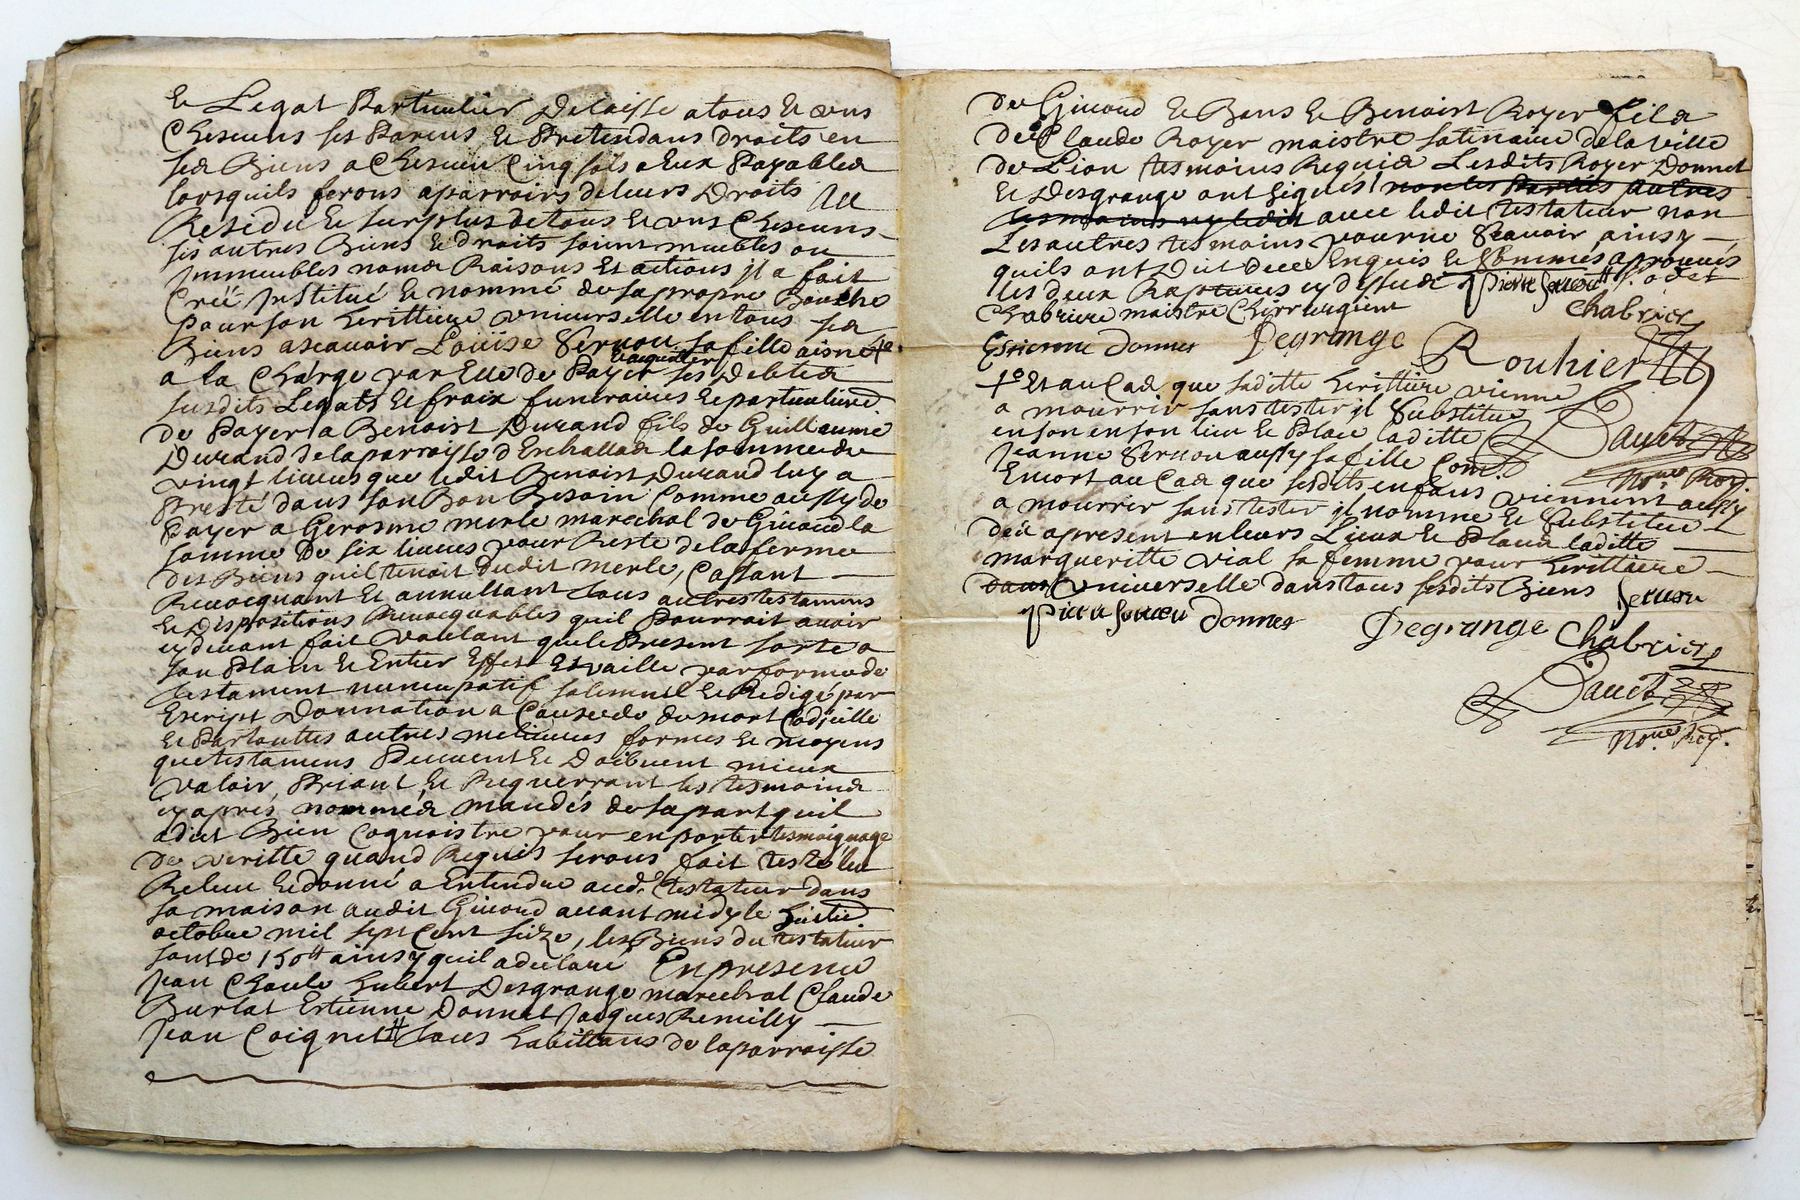 et Legat Particulier delaisse a tous et uns
Chescuns ses Parens et Pretendans droits en
ses Biens a Chescun Cinq sols a Eux Payables
lorsquils ferons aparroirs de leurs Droits Au
Residu et surplus de tous et uns Chescuns
ses autres Biens et droits soint meubles ou
Immeubles noms Raisons et actions jl a fait
Créé Institué et nommé de sa propre Bouche
pour son herittiere universelle en tous ses
Biens ascauoir Loüise Seruou sa fille aisnée
a la Charge par Elle de Payer ses Debtes
susdits Legats et fraix funeraires et particulierem.
de Payer a Benoist Durand fils de Guilleaume
Durand de la parroisse d'Eschallas la somme de
vingt liures que ledit Benoist Durand luy a
Presté dans son Bon Besoin Comme aussy de
Payer a Gerosme merle mareschal de Giuord la
somme de six liures pour Reste de la ferme
des Biens quil tenoit dudit merle, Cassant
Reuocquant et annullant tous autres testamens
et Dispositions Reuocquables quil Pourrait auoir
cy deuant fait voulant que le Present sorte a
son Plain et Entier Effet et vaille par forme de
testament nuncupatif solemnel et Redigé par
Escript Donnation a Cause de mort Codicille
et Par touttes autres meilleures formes et moyens
que testamens Peuuent et Doibuent mieux
valoir, Priant et Requerrant les tesmoins
cy aprés nommés mandés de sa part quil
a dict Bien Cognoistre pour en porter tesmoignage
de veritte quand Requis serons fait testé leu
Releu et donné a Entendre aud.t testateur dans
sa maison audit Giuord auant midy le huictie
octobre mil sept Cent seize, les Biens du testateur
sont de 150tt ainsy quil a declaré En presence
Jean Hubert Desgrange mareschal Claude
Burlat Estienne Donnet Jacques Remilly
Jean Coignet tous habittans de la parroisse
de Giuord et Benoist Royer fils
de Claude Royer maistre satinaire de la ville
de Lion tesmoins Requis Lesdits Royer Donnet
et Desgrange ont signés non les Parties autres
tesmoins ny ledit auec ledit testateur non
Les autres tesmoins pour ne Scauoir ainsy
quils ont Dit de ce Enquis et sommés aprouués
les deux cy dessus Pierre Seruou
Chabriere maistre Chirurgien Chabrier
Estienne donnet Degrange Rouhier
+ Et au Cas que saditte herittiere vienne
a mourrir sans tester jl Substitue
en son en son lieu et Place laditte
Jeanne Seruou aussy sa fille Com
Et mort au Cas que sesdits enfans viennent aussy
a mourrir sans tester jl nomme et Substitue
des apresent en leurs Lieux et Places laditte
margueritte vial sa femme pour herittiere
dans universelle dans tous sesdits Biens Seruou
Pierre Seruou donnet Degrange Chabrier
Dauet
No.re Roy.